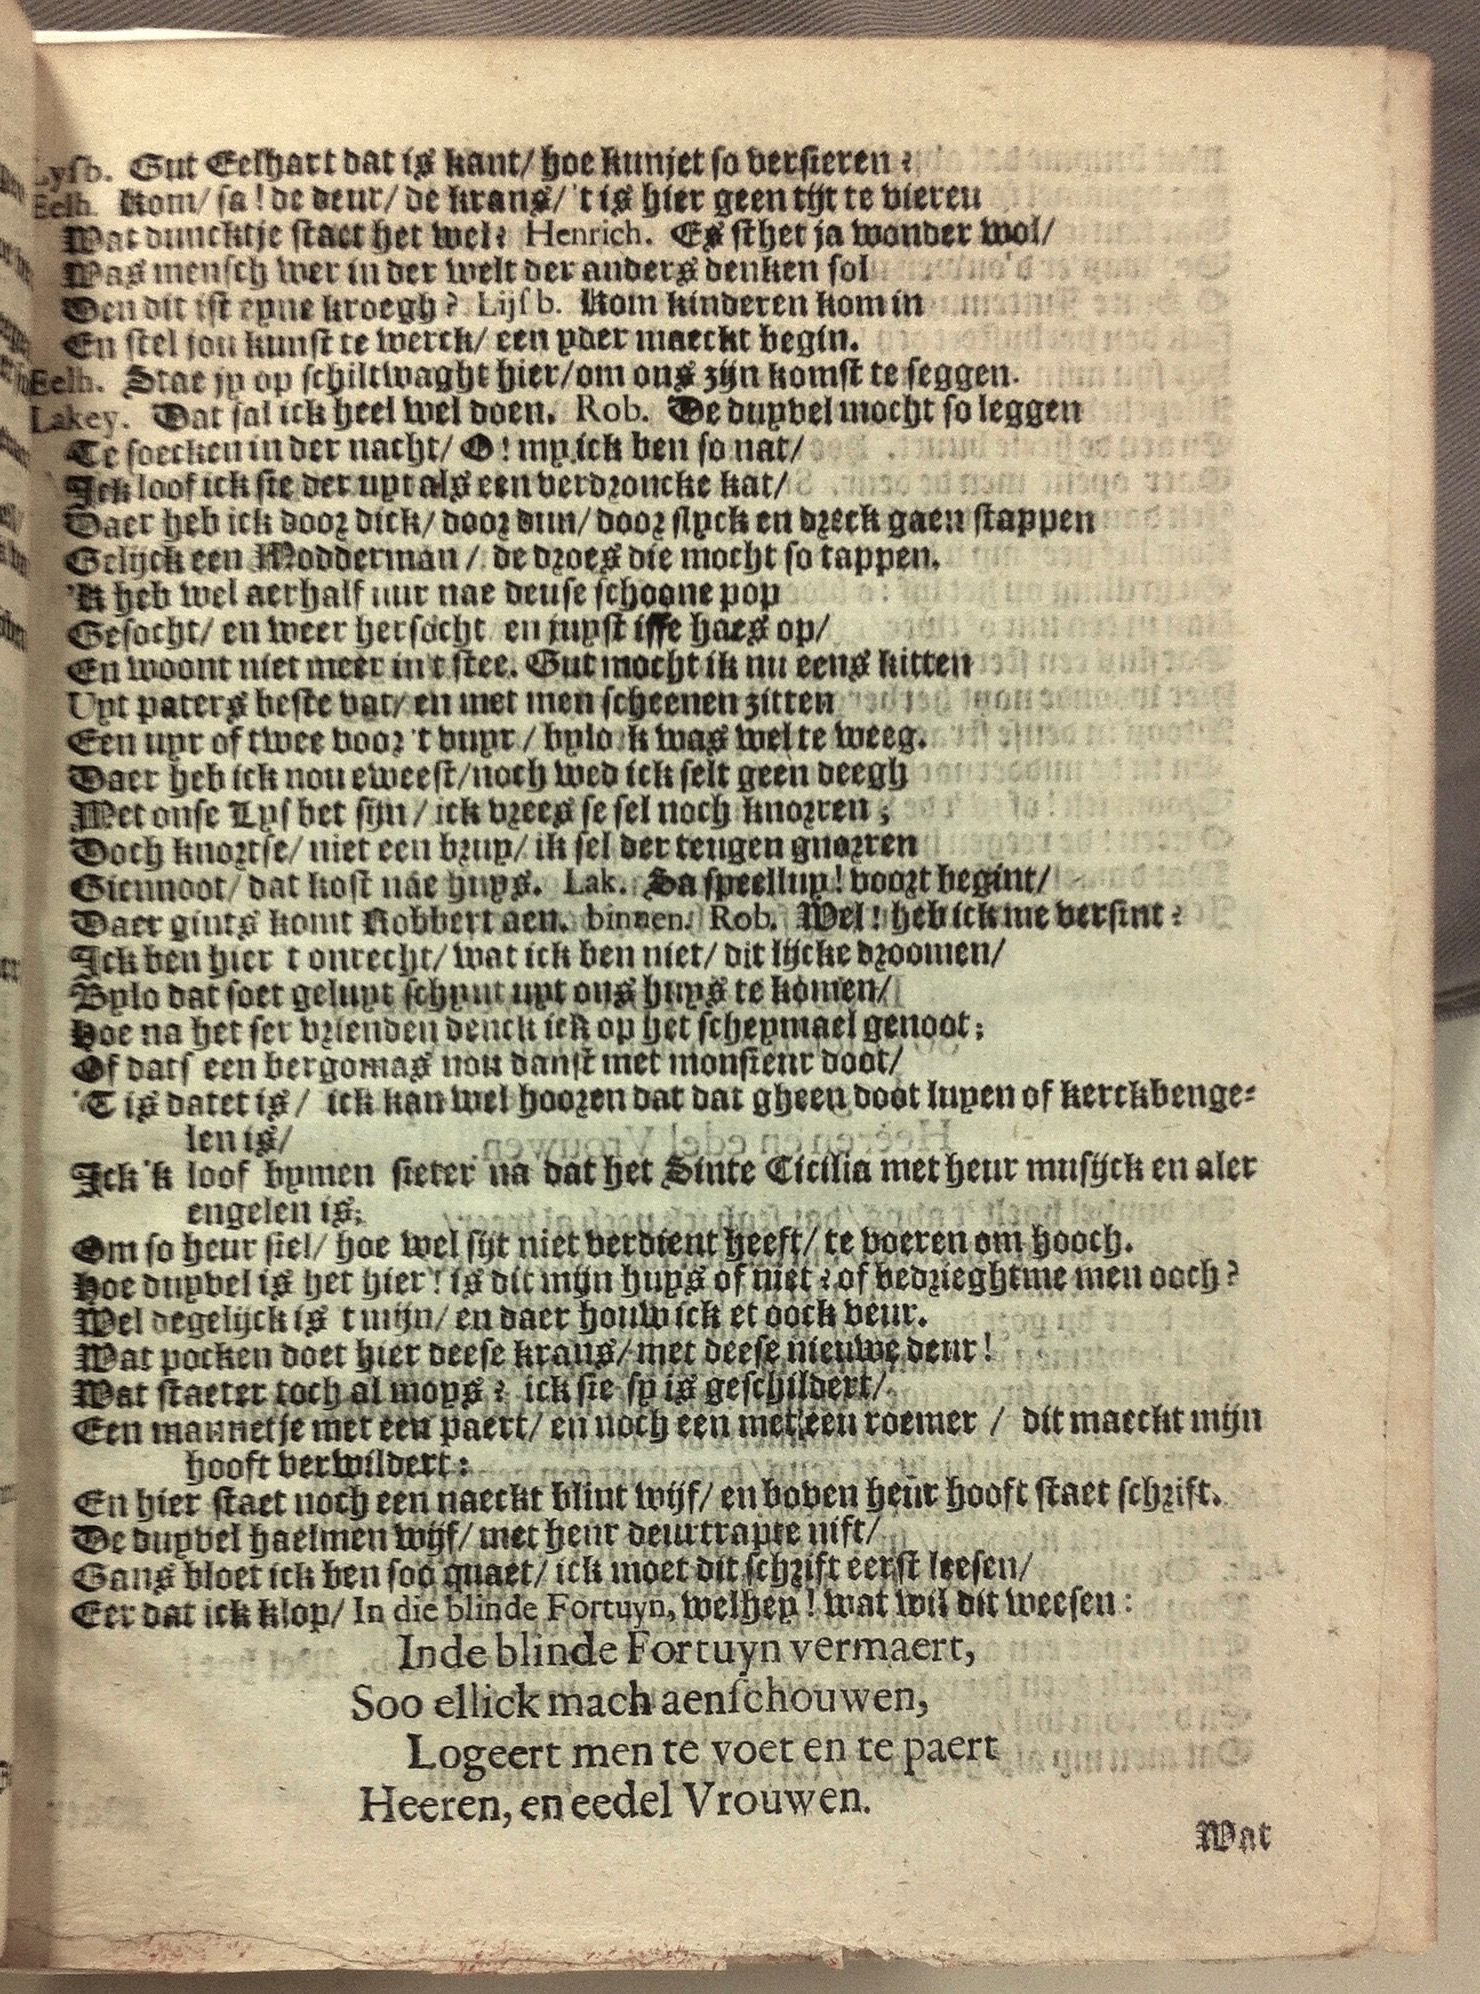 Lysb. Gut Eelhart dat is kant/ hoe kunjet so versieren?
Eelh. Kom/ sa! de deur/ de krans/ 't is hier geen tijt te vieren
Wat duncktje staet het wel? Henrich. Es sthet ja wonder wol/
Was mensch wer in der welt der anders denken sol
Den dit ist eyne kroegh? Lijsb. Kom kinderen kom in
En stel jou kunst te werck/ een yder maeckt begin.
Eelh. Stae jy op schiltwaght hier/ om ons zijn komst te seggen.
Lakey. Dat sal ick heel wel doen. Rob. De duyvel mocht so leggen
Te soecken in der nacht/ O! my ick ben so nat/
Ick loof ick sie der uyt als een verdroncke kat/
Daer heb ick door dick/ door dun/ door slyck en dreck gaen stappen
Gelijck een Modderman/ de droes die mocht so tappen.
'K heb wel aerhalf uur nae deuse schoone pop
Gesocht/ en weer hersocht en juyst isse haes op/
En woont niet meer in t stee. Gut mocht ik nu eens kitten
Uyt paters beste vat/ en met men scheenen zitten
Een uyr of twee voor 't vuyr/ bylo k was wel te weeg.
Daer heb ick nou eweest/ noch wed ick selt geen deegh
Met onse Lys bet sijn/ ick vrees se sel noch knorren;
Doch knortse/ niet een bruy/ ik sel der teugen gnorren
Giennoot/ dat kost nae huys. Lak. Sa speelluy! voort begint/
Daer gints komt Robbert aen. binnen. Rob. Wel! heb ick me versint?
Ick ben hier t onrecht/ wat ick ben niet/ dit lijcke droomen/
Bylo dat soet geluyt schynt uyt ons huys te komen/
Hoe na het ser vrienden denck ick op het scheymael genoot;
Of dats een bergomas nou danst met monsieur doot/
'T is datet is/ ick kan wel hooren dat dat gheen doot luyen of kerckbenge-
len is/
Ick 'k loof bymen sieter na dat het Sinte Cicilia met heur musijck en aler
engelen is;
Om so heur siel/ hoe wel sijt niet verdient heeft/ te voeren om hooch.
Hoe duyvel is het hier! is dit mijn huys of niet? of bedrieghtme men ooch?
Wel degelijck is t mijn/ en daer houw ick et oock veur.
Wat pocken doet hier deese krans/ met deese nieuwe deur!
Wat staeter toch al moys? ick sie sy is geschildert/
Een mannetje met een paert/ en noch een met een roemer/ dit maeckt mijn
hooft verwildert:
En hier staet noch een naeckt blint wijf/ en boven heur hooft staet schrift.
De duyvel haelmen wijf/ met heur deurtrapte nift/
Gans bloet ick ben soo quaet/ ick moet dit schrift eerst leesen/
Eer dat ick klop/ In die blinde Fortuyn, welhey! wat wil dit weesen:
Inde blinde Fortuyn vermaert,
Soo ellick mach aenschouwen,
Logeert men te voet en te paert
Heeren, en eedel Vrouwen.
Wat